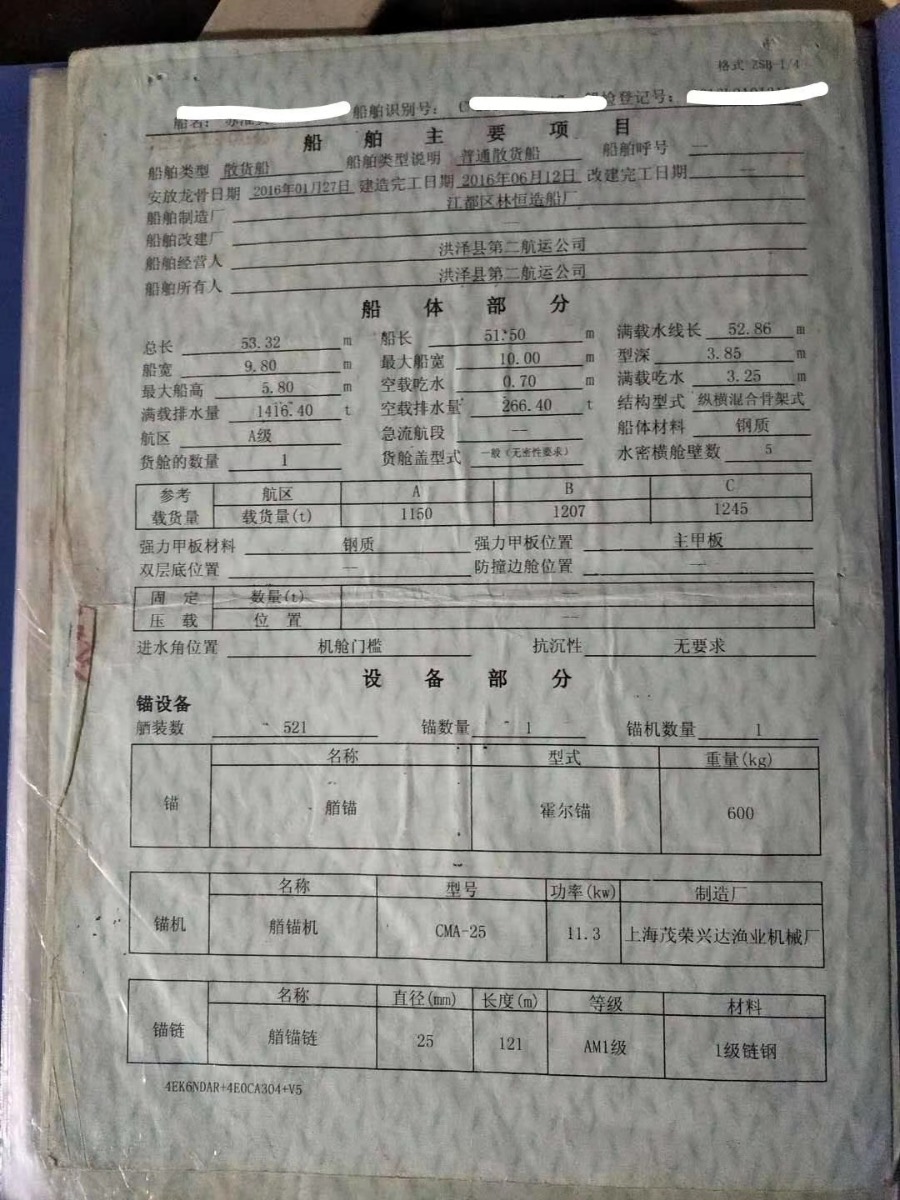 格式 ZSB-1/4
船名： 船舶识别号： 船检登记号：
船 舶 主 要 项 目
船舶类型 散货船 船舶类型说明 普通散货船 船舶呼号 —
安放龙骨日期 2016年01月27日 建造完工日期 2016年06月12日 改建完工日期 —
船舶制造厂 江都区林恒造船厂
船舶改建厂
船舶经营人 洪泽县第二航运公司
船舶所有人 洪泽县第二航运公司
船 体 部 分
总长 53.32 m 船长 51.50 m 满载水线长 52.86 m
船宽 9.80 m 最大船宽 10.00 m 型深 3.85 m
最大船高 5.80 m 空载吃水 0.70 m 满载吃水 3.25 m
满载排水量 1416.40 t 空载排水量 266.40 t 结构型式 纵横混合骨架式
航区 A级 急流航段 — 船体材料 钢质
货舱的数量 1 货舱盖型式 一般（无密性要求） 水密横舱壁数 5
参考 航区 A B C
载货量 载货量(t) 1150 1207 1245
强力甲板材料 钢质 强力甲板位置 主甲板
双层底位置 — 防撞边舱位置 —
固 定 数量(t) —
压 载 位 置 —
进水角位置 机舱门槛 抗沉性 无要求
设 备 部 分
锚设备
舾装数 521 锚数量 1 锚机数量 1
名称 型式 重量(kg)
锚 艏锚 霍尔锚 600
名称 型号 功率(kw) 制造厂
锚机 艏锚机 CMA-25 11.3 上海茂荣兴达渔业机械厂
名称 直径(mm) 长度(m) 等级 材料
锚链 艏锚链 25 121 AM1级 1级链钢
4EK6NDAR+4E0CA304+V5